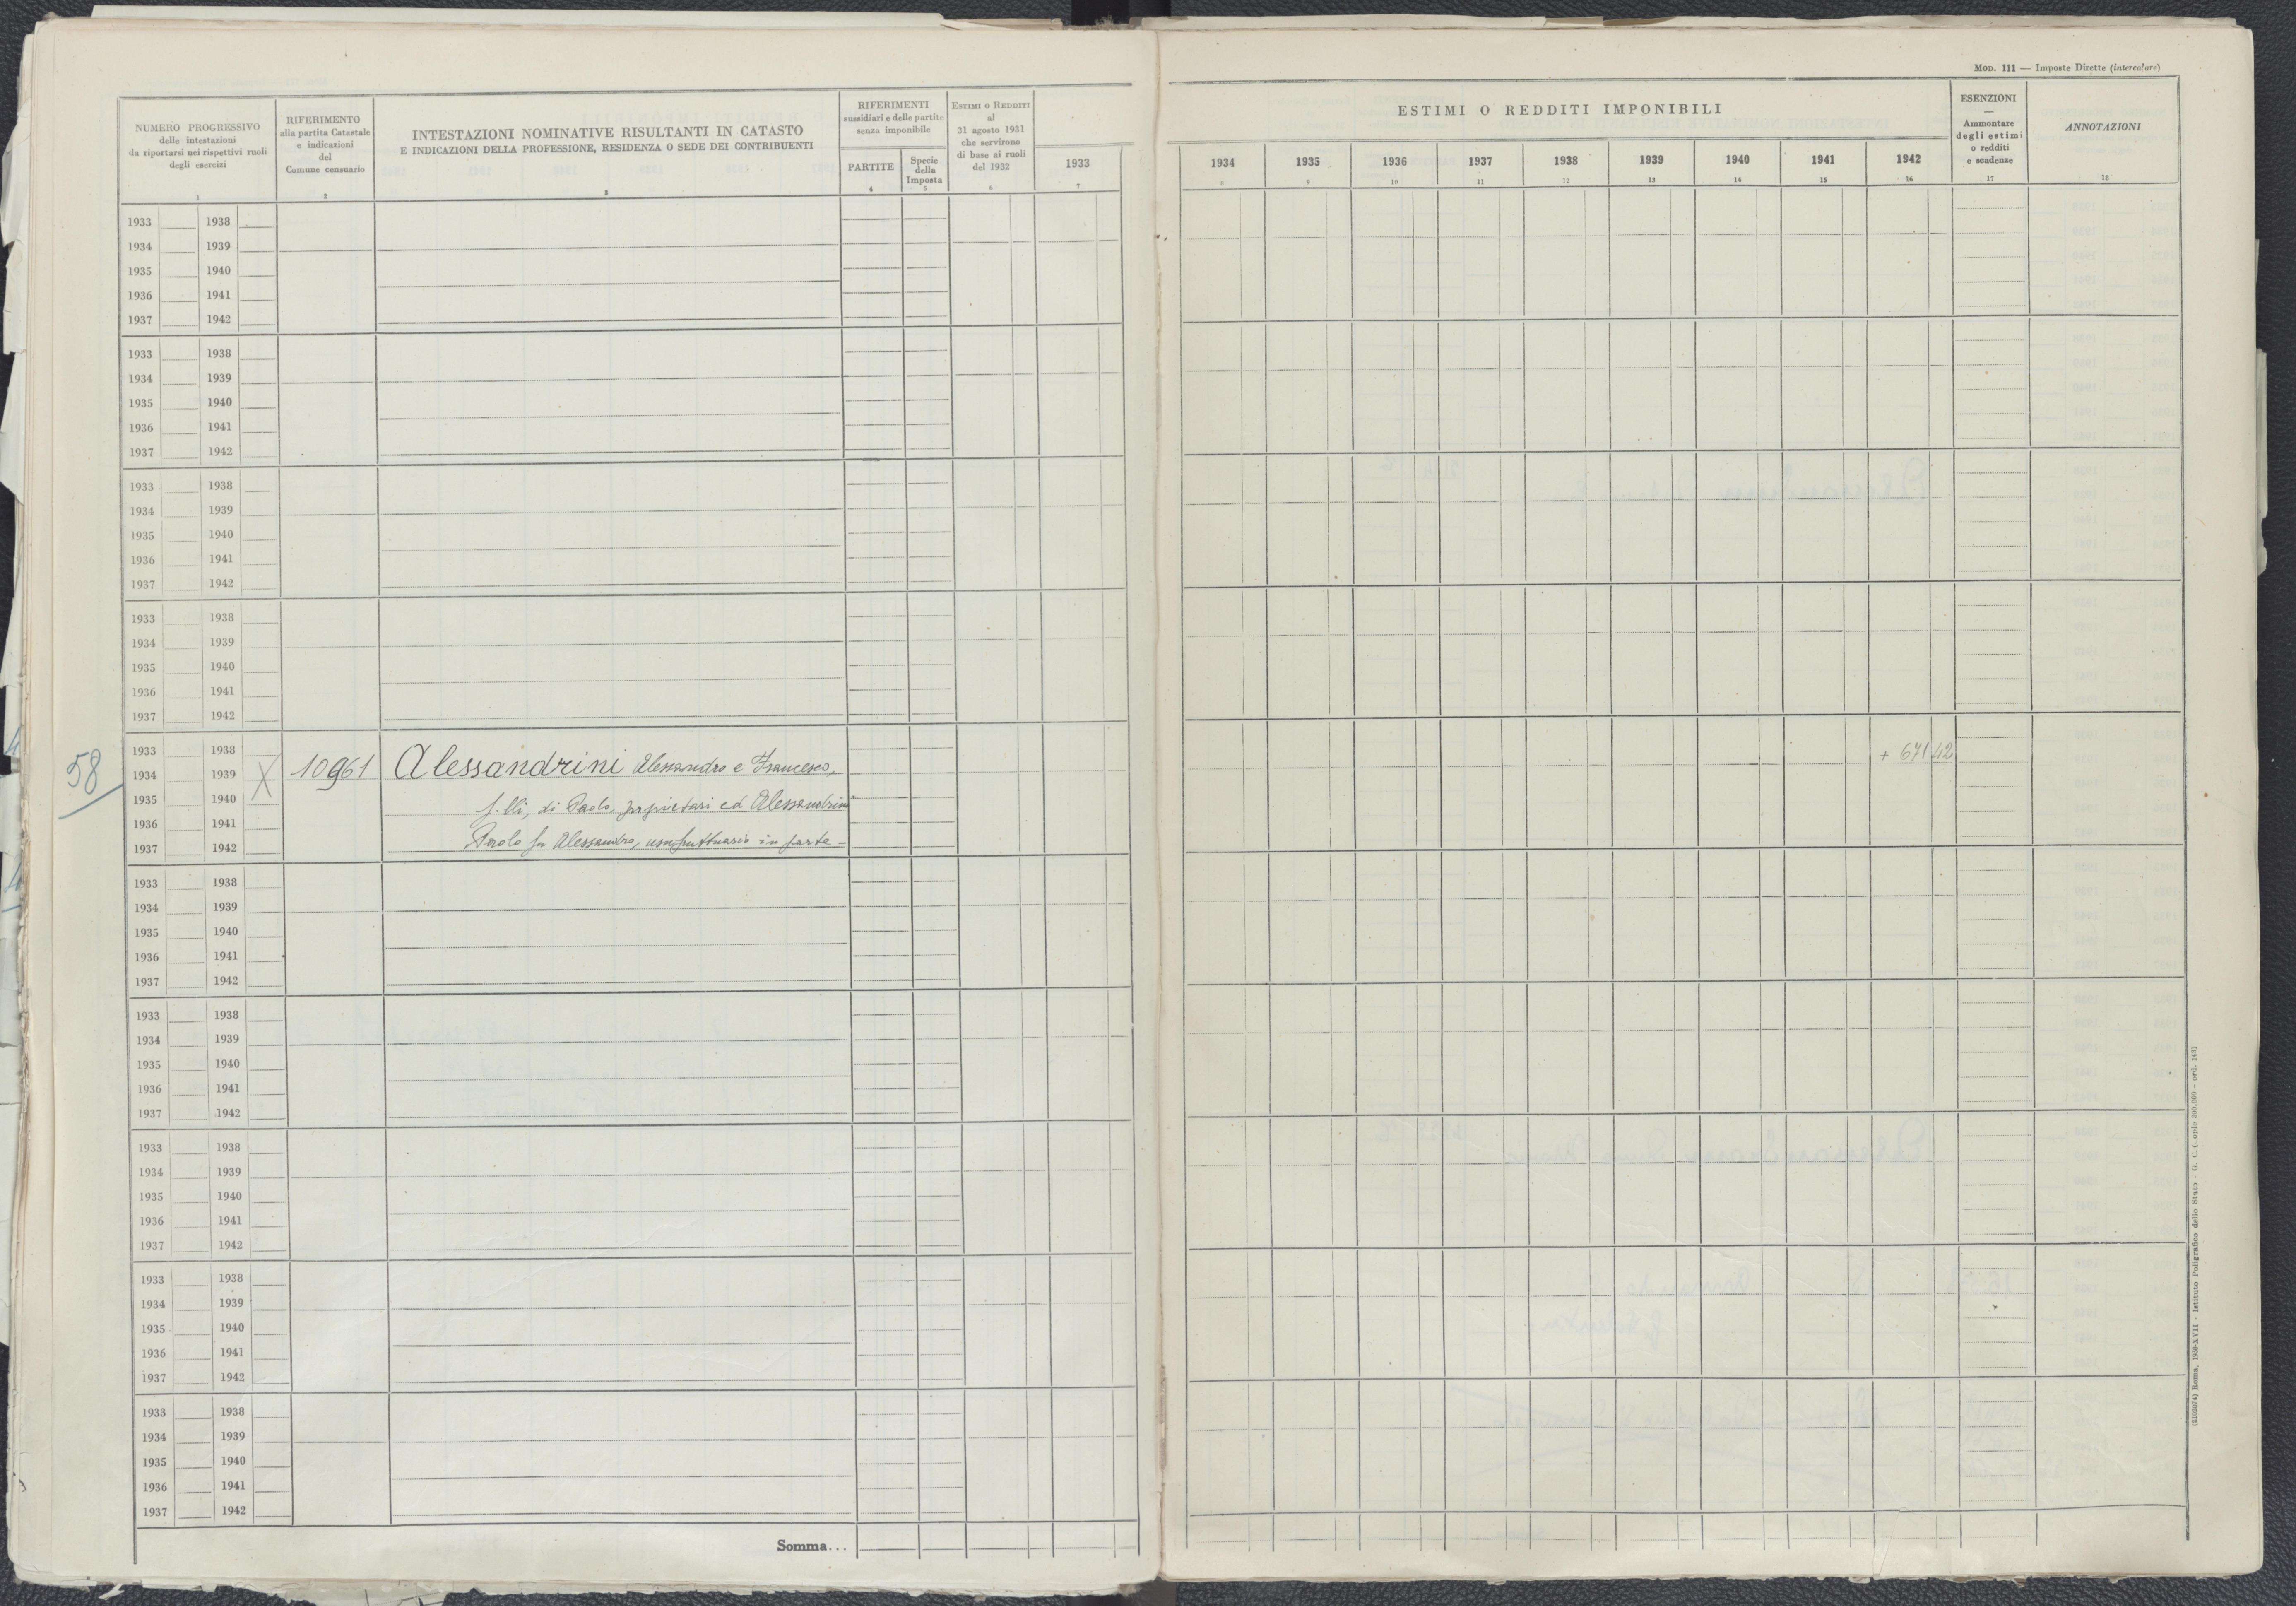 MOD. 111 — Imposte Dirette (intercalare)
NUMERO PROGRESSIVO
delle intestazioni
da riportarsi nei rispettivi ruoli
degli esercizi
1
RIFERIMENTO
alla partita Catastale
e indicazioni
del
Comune censuario
2
INTESTAZIONI NOMINATIVE RISULTANTI IN CATASTO
E INDICAZIONI DELLA PROFESSIONE, RESIDENZA O SEDE DEI CONTRIBUENTI
3
RIFERIMENTI
sussidiari e delle partite
senza imponibile
PARTITE
4
Specie
della
Imposta
5
ESTIMI O REDDITI
al
31 agosto 1931
che servirono
di base ai ruoli
del 1932
6
1933
7
ESTIMI O REDDITI IMPONIBILI
1934 1935 1936 1937 1938 1939 1940 1941 1942
8 9 10 11 12 13 14 15 16
ESENZIONI
—
Ammontare
degli estimi
o redditi
e scadenze
17
ANNOTAZIONI
18
1933 1938
1934 1939
1935 1940
1936 1941
1937 1942
1933 1938
1934 1939
1935 1940
1936 1941
1937 1942
1933 1938
1934 1939
1935 1940
1936 1941
1937 1942
1933 1938
1934 1939
1935 1940
1936 1941
1937 1942
58
1933 1938
1934 1939 X 10961 Alessandrini Alessandro e Francesco, + 671 42
1935 1940 f.lli, di Paolo, proprietari ed Alessandrini
1936 1941
1937 1942 Paolo fu Alessandro, usufruttuario in parte -
1933 1938
1934 1939
1935 1940
1936 1941
1937 1942
1933 1938
1934 1939
1935 1940
1936 1941
1937 1942
1933 1938
1934 1939
1935 1940
1936 1941
1937 1942
1933 1938
1934 1939
1935 1940
1936 1941
1937 1942
1933 1938
1934 1939
1935 1940
1936 1941
1937 1942
Somma...
Roma, 1938-XVII - Istituto Poligrafico dello Stato - G. C.